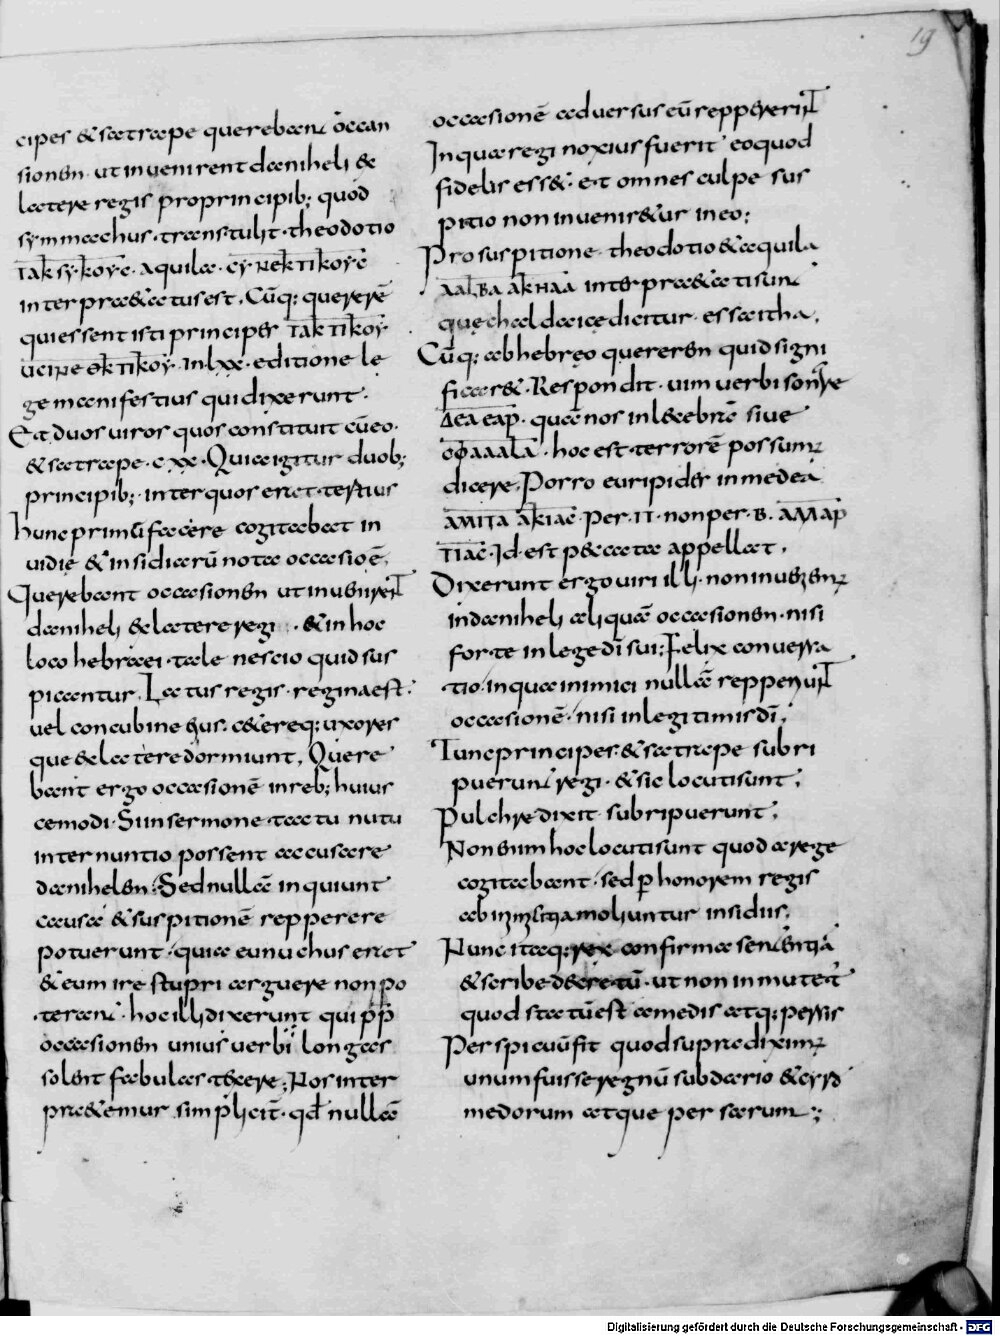 19
cipes & satrape querebant occan
sionem ut invenirent daniheli &
latere regis pro principib; quod
symmachus transtulit theodotio
interpraetatus est. Cūq; quererē
quiessent isti principes
in lxx editione le
ge manifestius qui dixerunt.
Et duos viros quos constituit cū eo.
& satrape cxx. Quia igitur duob;
principib; inter quos erat tertius
hunc primū facere cogitabat in
vidie & insidiarū nota occasiōē.
Querebant occasionem ut invenirent
daniheli & latere regi & in hoc
loco hebraei tale nescio quid sus
picantur. Latus regis regina est.
vel concubine eius. c&ereq; uxores
que & latere dormiunt. Quere
bant ergo occasionē in reb; huius
cemodi. Si in sermone tactu nutu
internuntio possent accusare
danihelem. Sed nullā inquiunt
causā & suspitionē repperere
potuerunt quia eunuchus erat
& eum ire stupri arguere non po
terant. hoc illi dixerunt qui pp
occasionem unius verbi longas
solent fabulas texere. Nos inter
pr&emur simpliciт. qđ nullā
occasionē adversus eū reppererint
In qua regi noxius fuerit eo quod
fidelis ess& et omnes culpe sus
pitio non invenir&ur in eo;
Pro suspitione theodotio & aquila
interpr&ati sunt
que chaldaice dicitur essaitha.
Cūq; ab hebreo quererem quid signi
ficar&. Respondit vim verbi sonare
quā nos inlecebrā sive
hoc est terrorē possum;
dicere. Porro euripides in medea
per π non per β.
Id est peccata appellat.
Dixerunt ergo viri illi non inveniem;
in daniheli aliquā occasionem nisi
forte in lege dī sui; Felix conversa
tio in qua inimici nullā reppererunt
occasionē nisi in legitimis dī.
Tunc principes & satrape subri
puerunt regi & sic locuti sunt.
Pulchre dixit subripuerunt.
Non enim hoc locuti sunt quod a rege
cogitabant. sed p honorem regis
ab moliuntur insidiis.
Nunc itaq; rex confirma sententiā
& scribe decretū ut non inmutet
quod statū est a medis atq; persis
Perspicuū fit quod supra dixim;
unum fuisse regnū sub dario & cyro
medorum atque persarum;
Digitalisierung gefördert durch die Deutsche Forschungsgemeinschaft - DFG